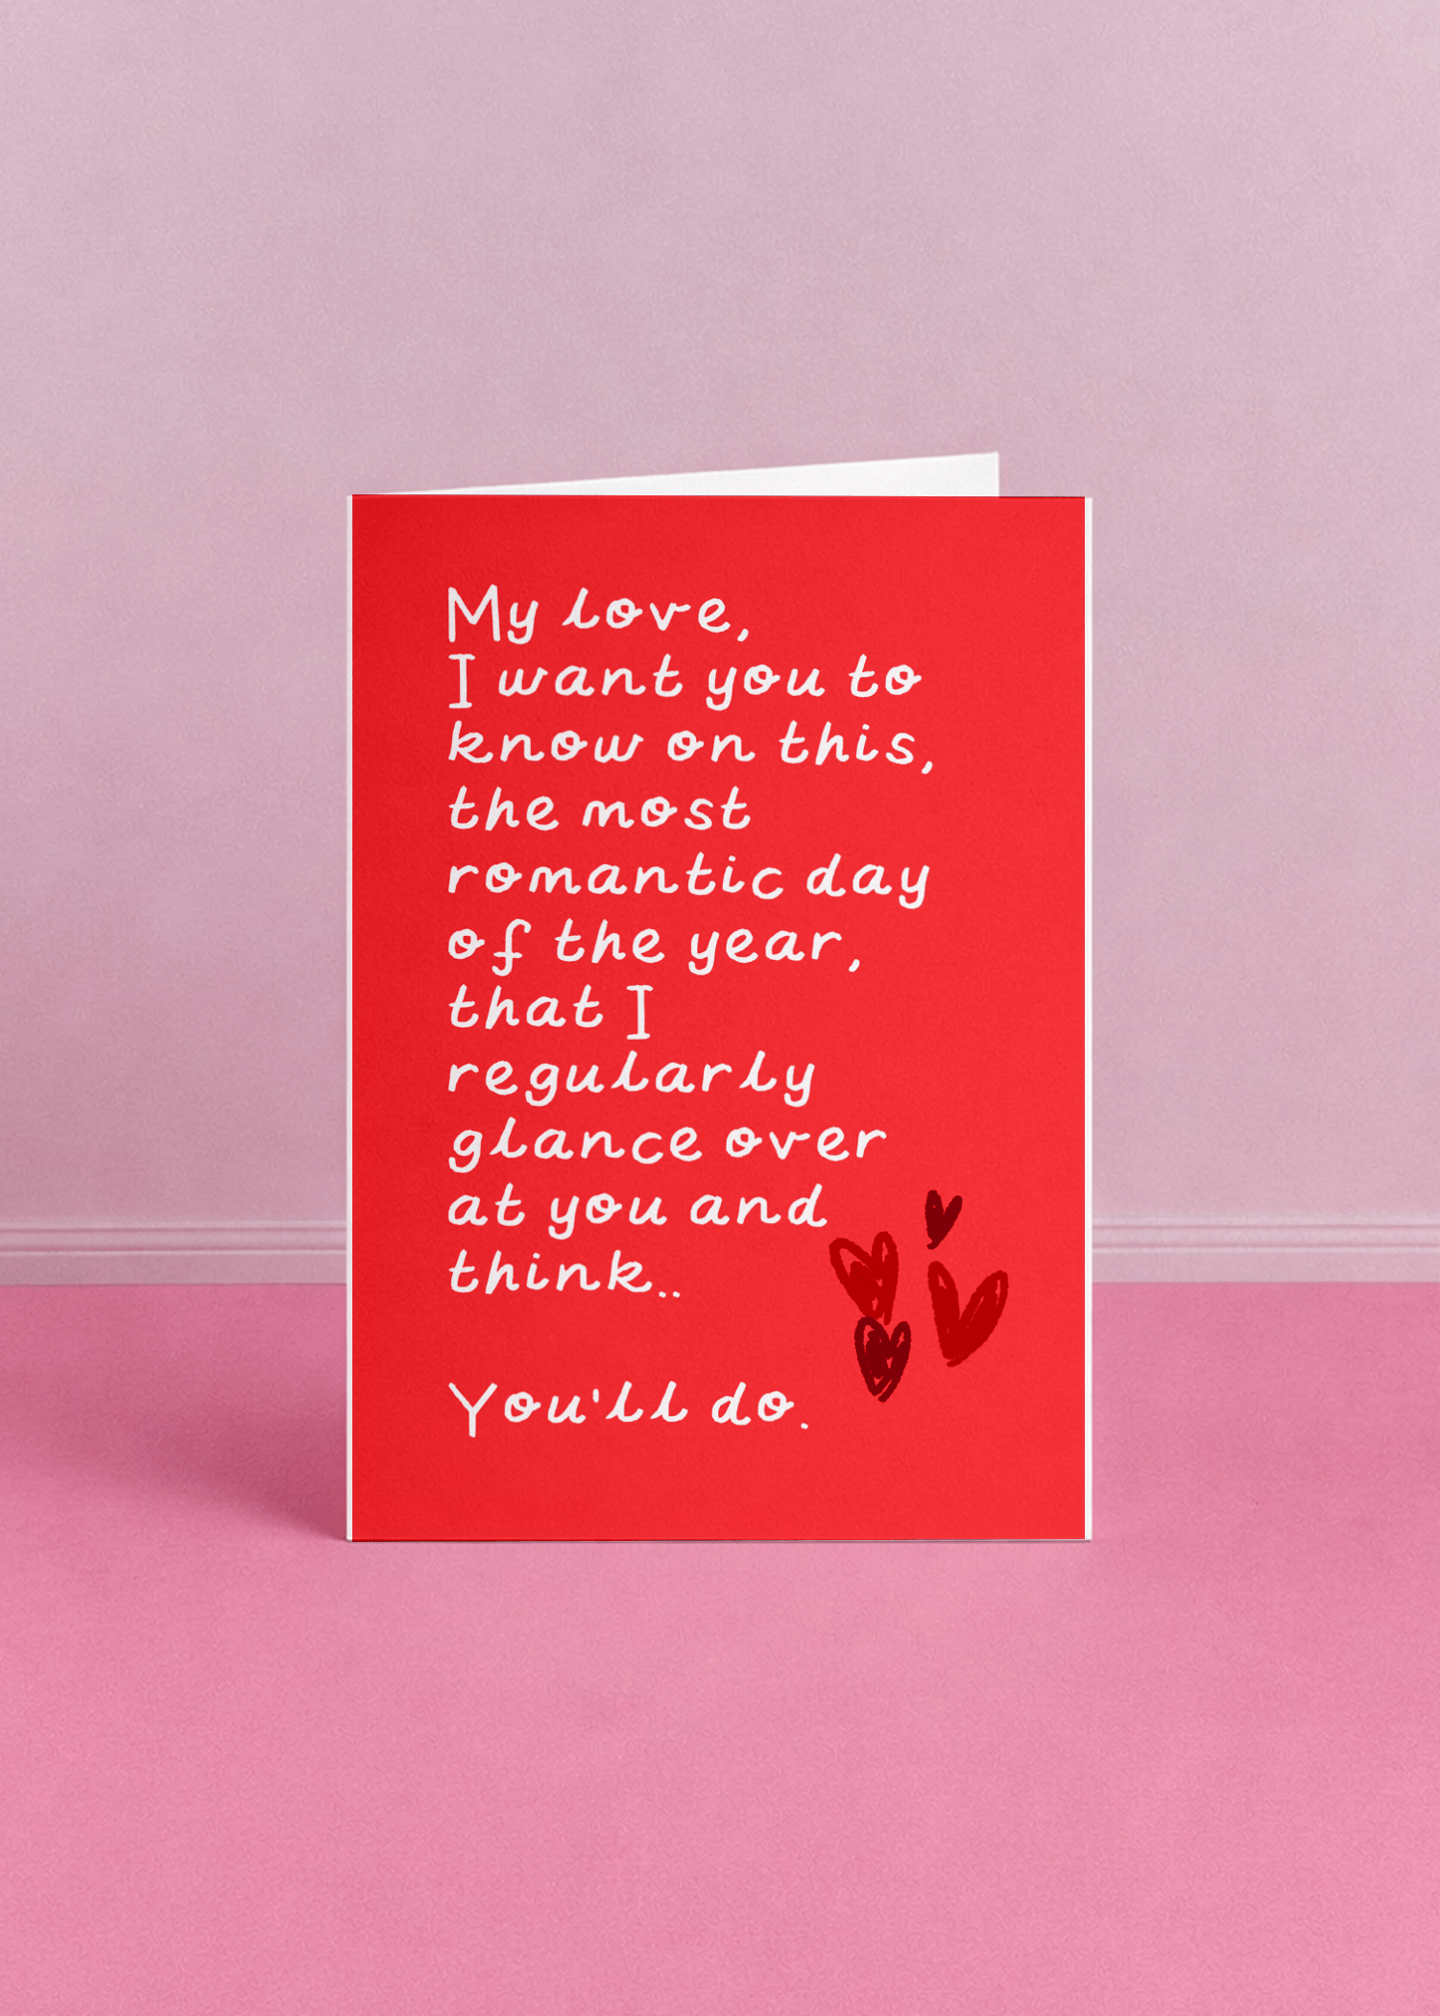 My love,
I want you to
know on this,
the most
romantic day
of the year,
that I
regularly
glance over
at you and
think..
You'll do.